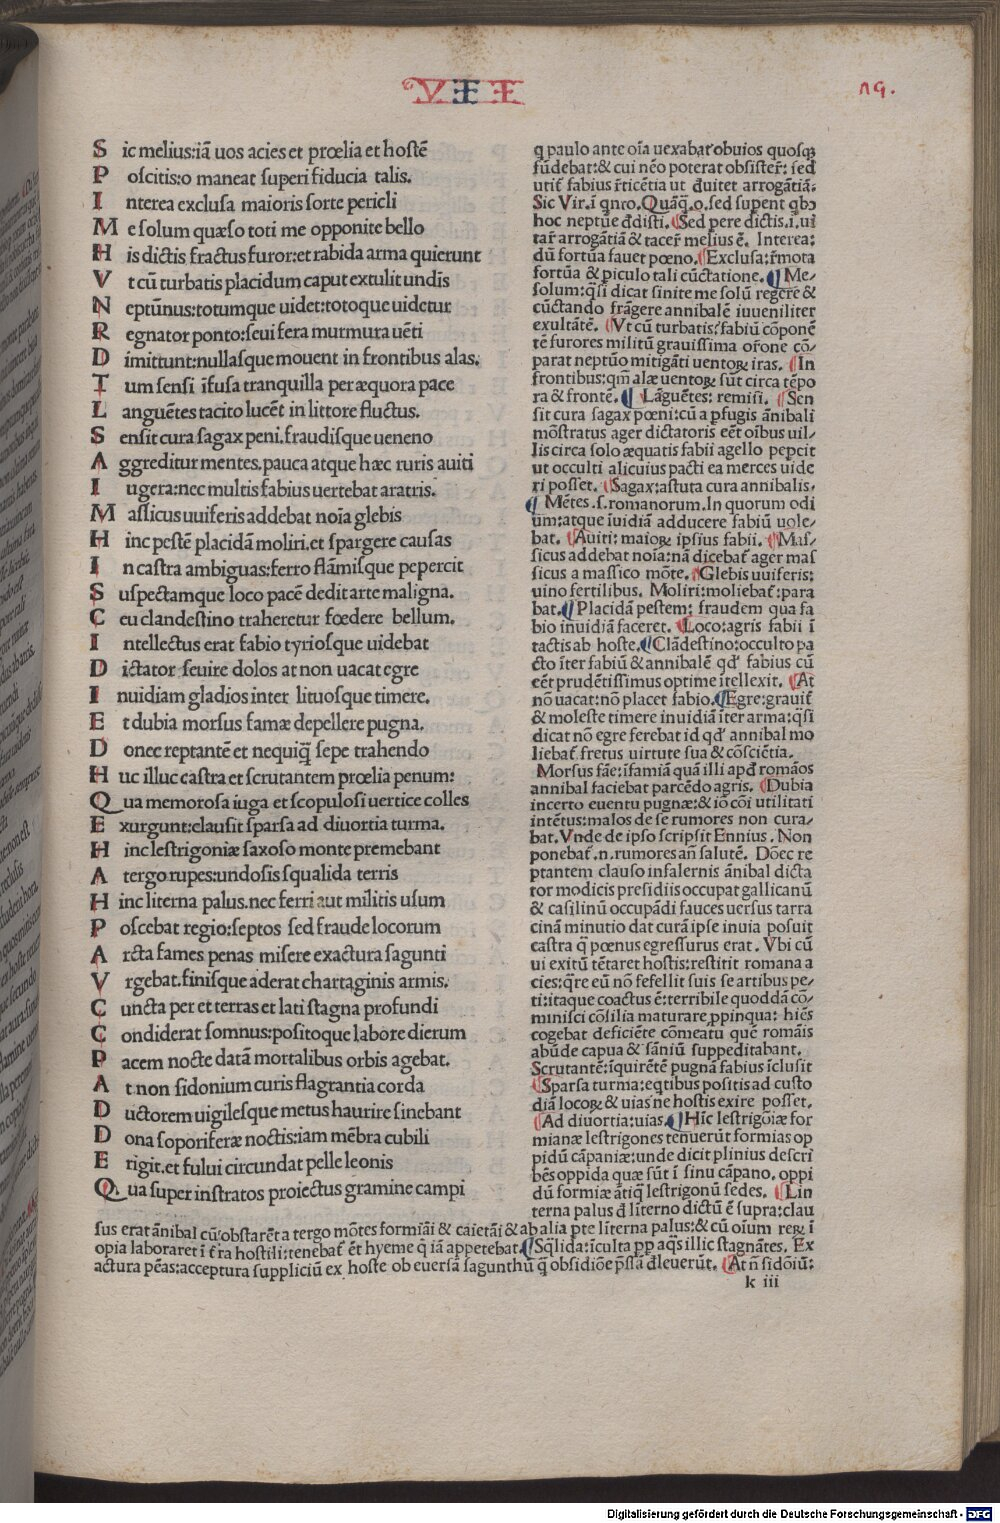 VII
79.
S ic melius:iā uos acies et prœlia et hostē
P oscitis:o maneat superi fiducia talis.
I nterea exclusa maioris sorte pericli
M e solum quæso toti me opponite bello
H is dictis fractus furor:et rabida arma quierunt
V t cū turbatis placidum caput extulit undis
N eptūnus:totumque uidet:totoque uidetur
R egnator ponto:seui fera murmura uēti
D imittunt:nullasque mouent in frontibus alas.
T um sensi īfusa tranquilla per æquora pace
L anguētes tacito lucēt in littore fluctus.
S ensit cura sagax peni.fraudisque ueneno
A ggreditur mentes.pauca atque hæc ruris auiti
I ugera:nec multis fabius uertebat aratris.
M assicus uuiferis addebat noīa glebis
H inc pestē placidā moliri.et spargere causas
I n castra ambiguas:ferro flāmisque pepercit
S uspectamque loco pacē dedit arte maligna.
C eu clandestino traheretur fœdere bellum.
I ntellectus erat fabio tyriosque uidebat
D ictator seuire dolos at non uacat egre
I nuidiam gladios inter lituosque timere.
E t dubia morsus famæ depellere pugna.
D onec reptantē et nequiq̄ sepe trahendo
H uc illuc castra et scrutantem prœlia penum:
Q ua memorosa iuga et scopulosi uertice colles
E xurgunt:clausit sparsa ad diuortia turma.
H inc lestrigoniæ saxoso monte premebant
A tergo rupes:undosis squalida terris
H inc literna palus.nec ferri aut militis usum
P oscebat regio:septos sed fraude locorum
A rcta fames penas misere exactura sagunti
V rgebat.finisque aderat chartaginis armis.
C uncta per et terras et lati stagna profundi
C ondiderat somnus:positoque labore dierum
P acem nocte datā mortalibus orbis agebat.
A t non sidonium curis flagrantia corda
D uctorem uigilesque metus haurire sinebant
D ona soporiferæ noctis:iam mēbra cubili
E rigit.et fului circundat pelle leonis
Q ua super instratos proiectus gramine campi
q paulo ante oīa uexabat obuios quosqꝫ
fūdebat:& cui nēo poterat obsister̄: sed
utit̄ fabius r̄ticētia ut đuitet arrogātiā:
Sic Vir.ī qnto.Quāq̄.o.sed supent qbꝰ
hoc neptūe đdisti. Sed pere dictis.ī.ui
tar̄ arrogātiā & tacer̄ melius ē. Interea:
dū fortūa fauet pœno. Exclusa:r̄mota
fortūa & piculo tali cūctatione. Me/
solum:q̄si dicat sinite me solū regere &
cūctando frāgere annibalē iuueniliter
exultātē. Vt cū turbatis:fabiū cōponē
tē furores militū grauissima or̄one cō/
parat neptūo mitigāti uentoꝝ iras. In
frontibus:qm̄ alæ uentoꝝ sūt circa tēpo
ra & frontē. Lāguētes: remisi. Sen
sit cura sagax pœni:cū a pfugis ānibali
mōstratus ager dictatoris eēt oībus uil/
lis circa solo æquatis fabii agello pepcit
ut occulti alicuius pacti ea merces uide
ri posset. Sagax:astuta cura annibalis.
Mētes.s.romanorum.In quorum odi
um:atque īuidiā adducere fabiū uole/
bat. Auiti: maioꝝ ipsius fabii. Mas/
sicus addebat noīa:nā dicebat̄ ager mas
sicus a massico mōte. Glebis uuiferis:
uino fertilibus. Moliri:moliebat̄:para
bat. Placidā pestem: fraudem qua fa
bio inuidiā faceret. Loco:agris fabii ī
tactis ab hoste. Clādestino:occulto pa
cto īter fabiū & annibalē qđ fabius cū
eēt prudētissimus optime ītellexit. At
nō uacat:nō placet fabio. Egre:grauit̄
& moleste timere inuidiā īter arma:q̄si
dicat nō egre ferebat id qđ annibal mo
liebat̄ fretus uirtute sua & cōsciētia.
Morsus fāe:īfamiā quā illi apđ romāos
annibal faciebat parcēdo agris. Dubia
incerto euentu pugnæ:& iō cōi utilitati
intētus:malos de se rumores non cura/
bat.Vnde de ipso scripsit Ennius. Non
ponebat.n.rumores an̄ salutē. Dōec re
ptantem clauso infalernis ānibal dicta
tor modicis presidiis occupat gallicanū
& casilinū occupādi fauces uersus tarra
cinā minutio dat curā ipse inuia posuit
castra q̄ pœnus egressurus erat. Vbi cū
ui exitū tētaret hostis:restitit romana a
cies:q̄re eū nō fefellit suis se artibus pe/
ti:itaque coactus ē:terribile quoddā cō/
minisci cōsilia maturare ꝓpinqua: hiēs
cogebat deficiēte cōmeatu quē romāis
abūde capua & sāniū suppeditabant.
Scrutantē:īquirētē pugnā fabius īclusit
Sparsa turma:eqtibus positis ad custo
diā locoꝝ & uias ne hostis exire posset.
Ad diuortia:uias. Hīc lestrigōiæ for
mianæ lestrigones tenuerūt formias op
pidū cāpaniæ:unde dicit plinius descri
bēs oppida quæ sūt ī sinu cāpano.oppi
dū formiæ ātiq̄ lestrigonū sedes. Lin
terna palus đ līterno dictū ē supra:clau
sus erat ānibal cū:obstarēt a tergo mōtes formiāi & caietāi & ab alia pte līterna palus:& cū oīum reꝝ ī
opia laboraret ī t̄ra hostili:tenebat̄ ēt hyeme q̄ iā appetebat. Sq̄lida:īculta ꝓp aq̄s illic stagnātes. Ex
actura pēas:acceptura suppliciū ex hoste ob euersā sagunthū q̄ obsidiōe p̄ssā đleuerūt. At n̄ sidōiū:
k iii
Digitalisierung gefördert durch die Deutsche Forschungsgemeinschaft - DFG